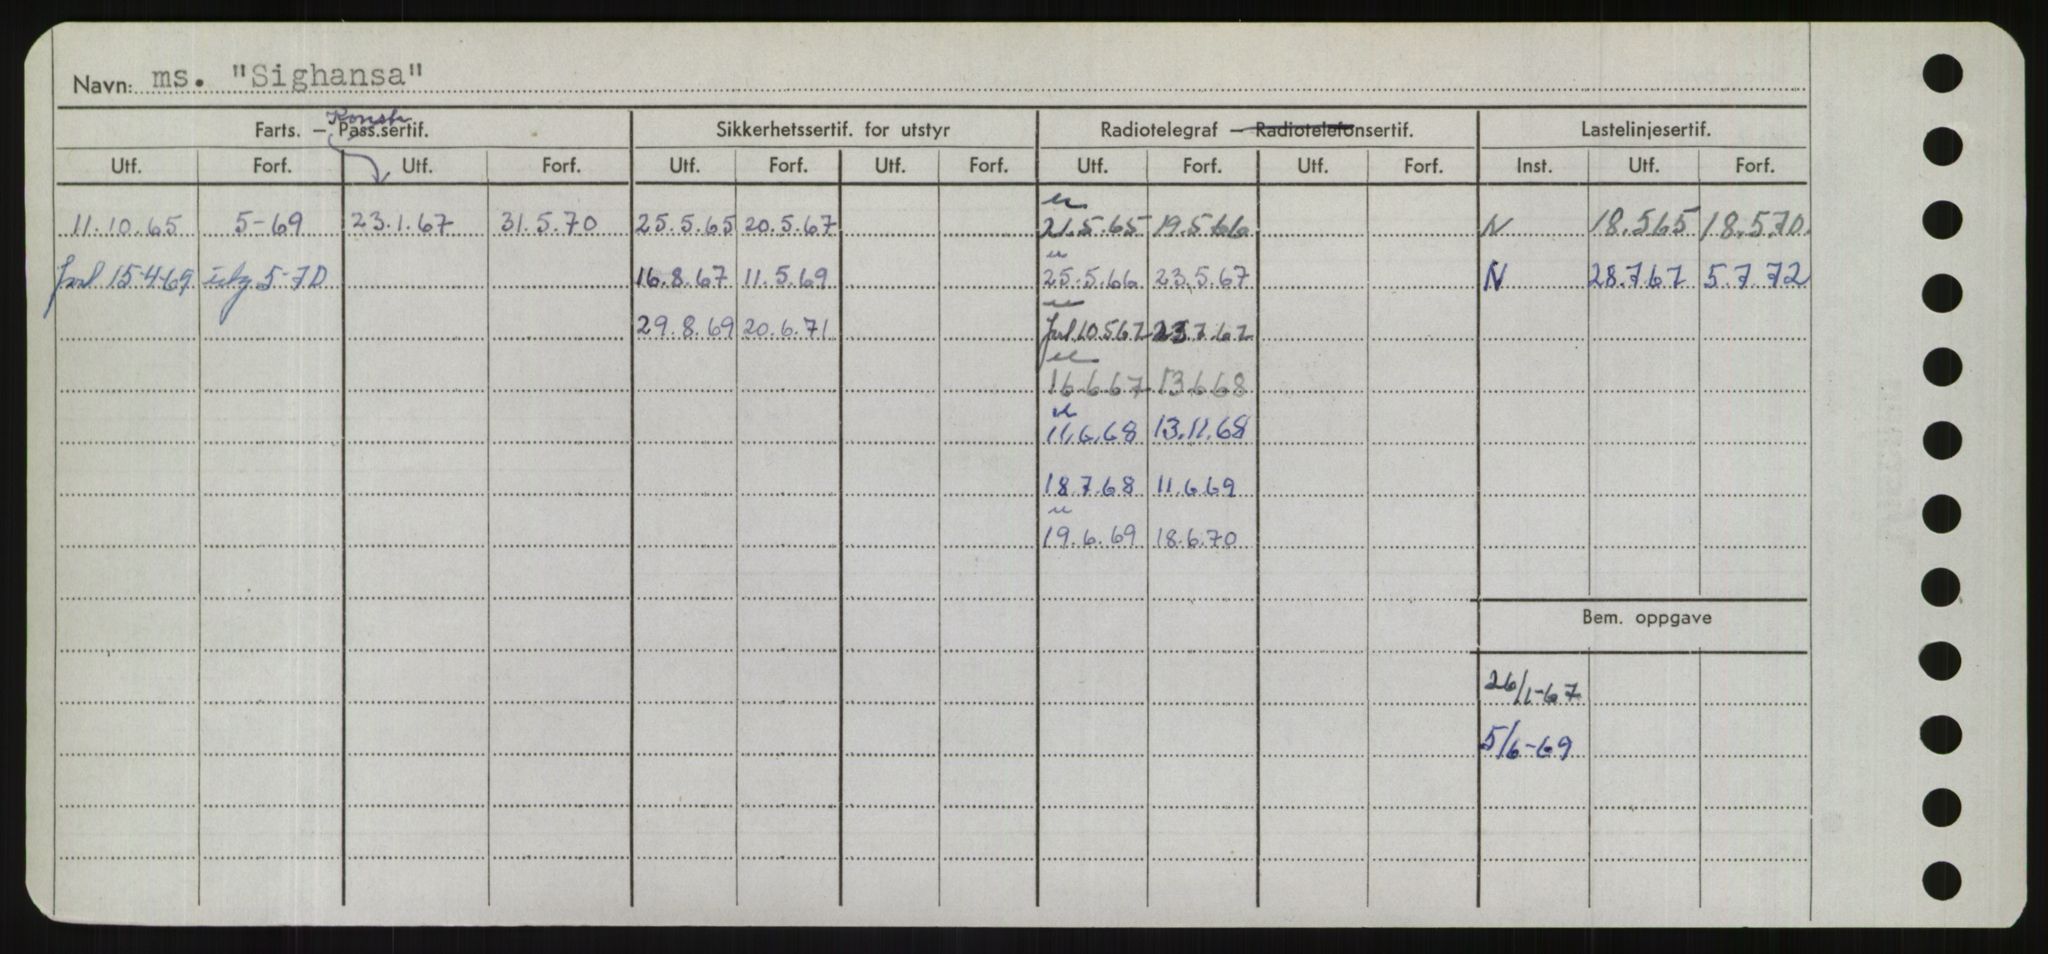 Navn: ms. "Sighansa"
Konstr
Farts. – Pass.sertif. Sikkerhetssertif. for utstyr Radiotelegraf – Radiotelefonsertif. Lastelinjesertif.
Utf. Forf. Utf. Forf. Utf. Forf. Utf. Forf. Utf. Forf. Utf. Forf. Inst. Utf. Forf.
11.10.65 5-69 23.1.67 31.5.70 25.5.65 20.5.67 21.5.65 19.5.66 N 18.5.65 18.5.70
15-4-69 5-70 16.8.67 11.5.69 25.5.66 23.5.67 N 28.7.67 5.7.72
29.8.69 20.6.71 10.5.67 23.7.67
16.6.67 13.6.68
11.6.68 13.11.68
18.7.68 11.6.69
19.6.69 18.6.70
Bem. oppgave
26/1-67
5/6-69